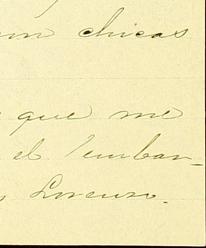 chicas
que me
el embar-
Lorenzo.